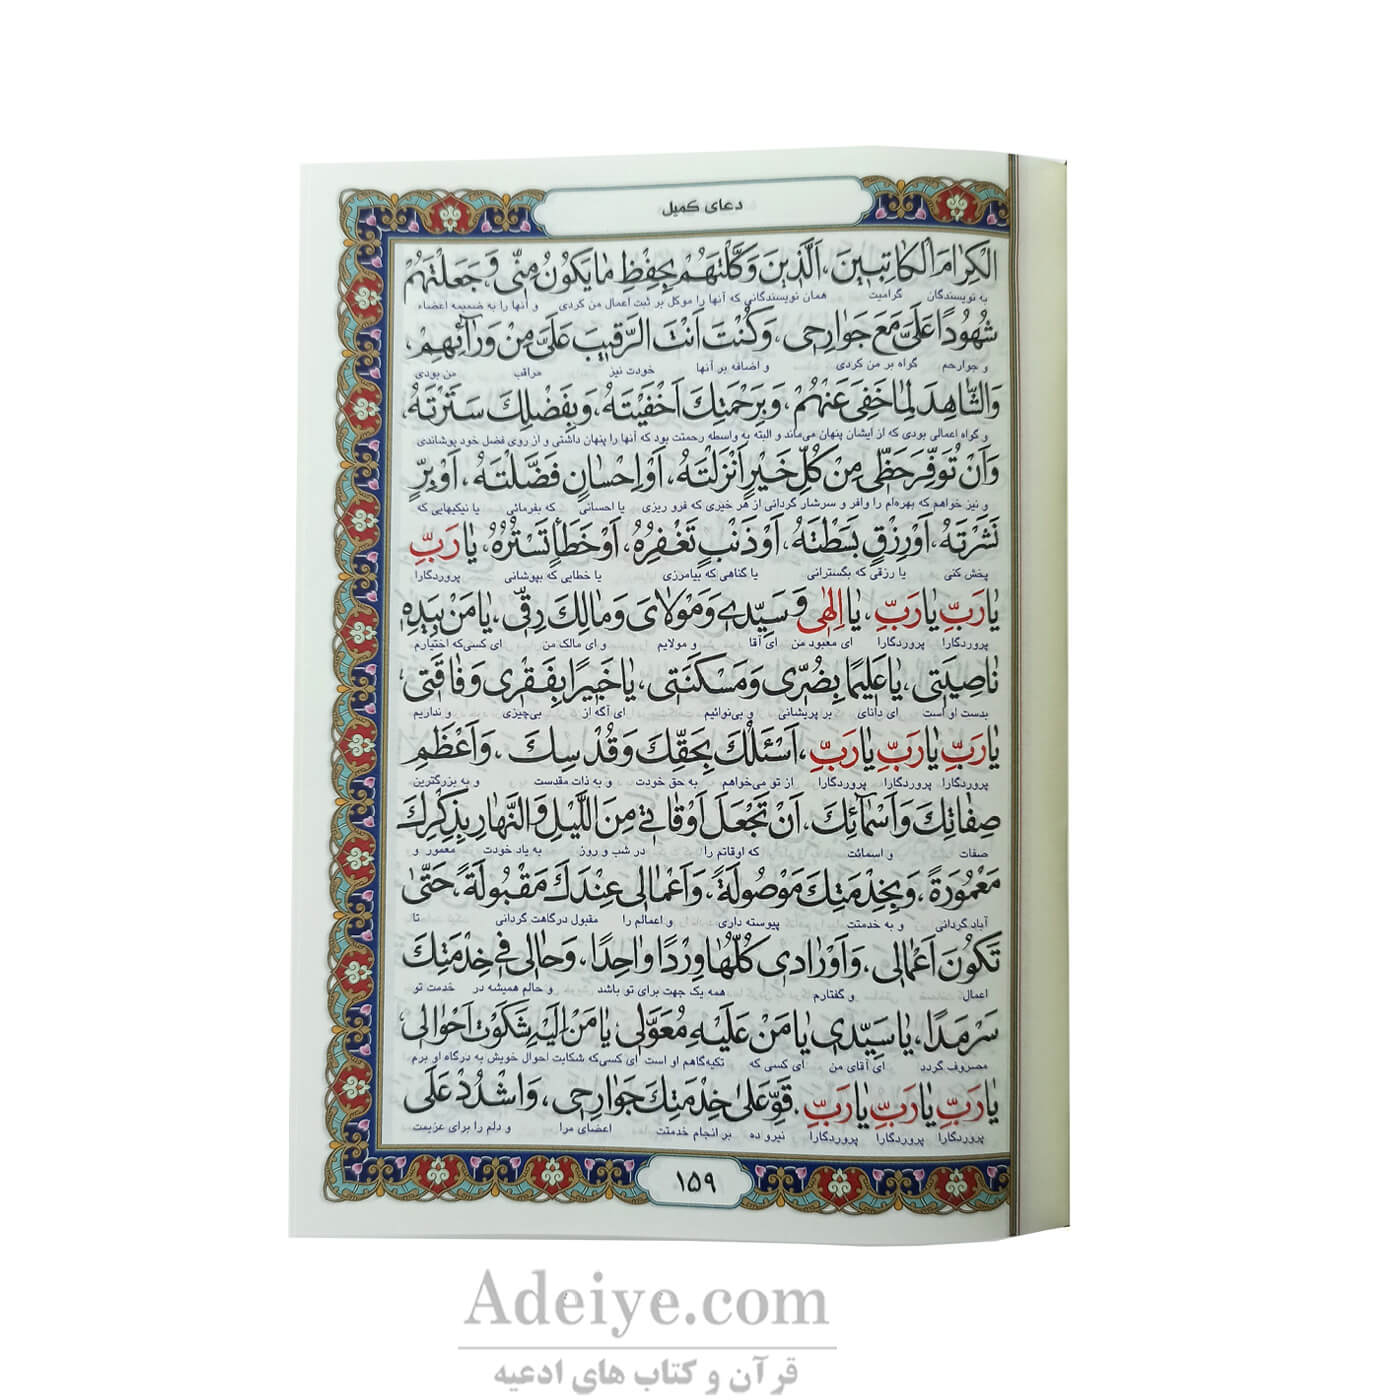 دعای کمیل
الْكِرٰامَ الْكٰاتِبينَ، اَلَّذينَ وَكَّلْتَهُمْ بِحِفْظِ مٰا يَكُونُ مِنّى، وَ جَعَلْتَهُمْ
به نویسندگان گرامیت همان نویسندگانی که آنها را موکل بر ثبت اعمال من کردی و آنها را به ضمیمه اعضاء
شُهُودًا عَلَىَّ مَعَ جَوٰارِحى، وَ كُنْتَ اَنْتَ الرَّقيبَ عَلَىَّ مِنْ وَرٰآئِهِمْ،
و جوارحم گواه بر من کردی و اضافه بر آنها خودت نیز مراقب من بودی
وَالشّٰاهِدَ لِمٰا خَفِىَ عَنْهُمْ، وَ بِرَحْمَتِكَ اَخْفَيْتَهُ، وَ بِفَضْلِكَ سَتَرْتَهُ،
و گواه اعمالی بودی که از ایشان پنهان می‌ماند و البته به واسطه رحمتت بود که آنها را پنهان داشتی و از روی فضل خود پوشاندی
وَ اَنْ تُوَفِّرَ حَظّى مِنْ كُلِّ خَيْرٍ اَنْزَلْتَهُ، اَوْ اِحْسٰانٍ فَضَّلْتَهُ، اَوْ بِرٍّ
و نیز خواهم که بهره‌ام را وافر و سرشار گردانی از هر خیری که فرو ریزی یا احسانی که بفرمائی یا نیکیهایی که
نَشَرْتَهُ، اَوْ رِزْقٍ بَسَطْتَهُ، اَوْ ذَنْبٍ تَغْفِرُهُ، اَوْ خَطَأٍ تَسْتُرُهُ، يٰا رَبِّ
پخش کنی یا رزقی که بگسترانی یا گناهی که بیامرزی یا خطایی که بپوشانی پروردگارا
يٰا رَبِّ يٰا رَبِّ، يٰا اِلٰهى وَ سَيِّدى وَ مَوْلاىَ وَ مٰالِكَ رِقّى، يٰا مَنْ بِيَدِهِ
پروردگارا پروردگارا ای معبود من ای آقا و مولایم و ای مالک من ای کسی‌که اختیارم
نٰاصِيَتى، يٰا عَليمًا بِضُرّى وَ مَسْكَنَتى، يٰا خَبيرًا بِفَقْرى وَ فٰاقَتى،
بدست او است ای دانای بر پریشانی و بی‌نوائیم ای آگه از بی‌چیزی و نداریم
يٰا رَبِّ يٰا رَبِّ يٰا رَبِّ، اَسْئَلُكَ بِحَقِّكَ وَ قُدْسِكَ، وَ اَعْظَمِ
پروردگارا پروردگارا پروردگارا از تو می‌خواهم به حق خودت و به ذات مقدست و به بزرگترین
صِفٰاتِكَ وَ اَسْمٰآئِكَ، اَنْ تَجْعَلَ اَوْقٰاتى مِنَ اللَّيْلِ وَ النَّهٰارِ بِذِكْرِكَ
صفات و اسمائت که اوقاتم را در شب و روز به یاد خودت معمور و
مَعْمُورَةً، وَ بِخِدْمَتِكَ مَوْصُولَةً، وَ اَعْمٰالى عِنْدَكَ مَقْبُولَةً، حَتّىٰ
آباد گردانی و به خدمتت پیوسته داری و اعمالم را مقبول درگاهت گردانی تا
تَكُونَ اَعْمٰالى، وَ اَوْرٰادى كُلُّهٰا وِرْدًا وٰاحِدًا، وَ حٰالى فى خِدْمَتِكَ
اعمال و گفتارم همه یک جهت برای تو باشد و حالم همیشه در خدمت تو
سَرْمَدًا، يٰا سَيِّدى يٰا مَنْ عَلَيْهِ مُعَوَّلى يٰا مَنْ اِلَيْهِ شَكَوْتُ اَحْوٰالى،
مصروف گردد ای آقای من ای کسی که تکیه‌گاهم او است ای کسی‌که شکایت احوال خویش به درگاه او برم
يٰا رَبِّ يٰا رَبِّ يٰا رَبِّ. قَوِّ عَلىٰ خِدْمَتِكَ جَوٰارِحى، وَ اشْدُدْ عَلَى
پروردگارا پروردگارا پروردگارا نیرو ده بر انجام خدمتت اعضای مرا و دلم را برای عزیمت
۱۵۹
Adeiye.com
قرآن و کتاب های ادعیه